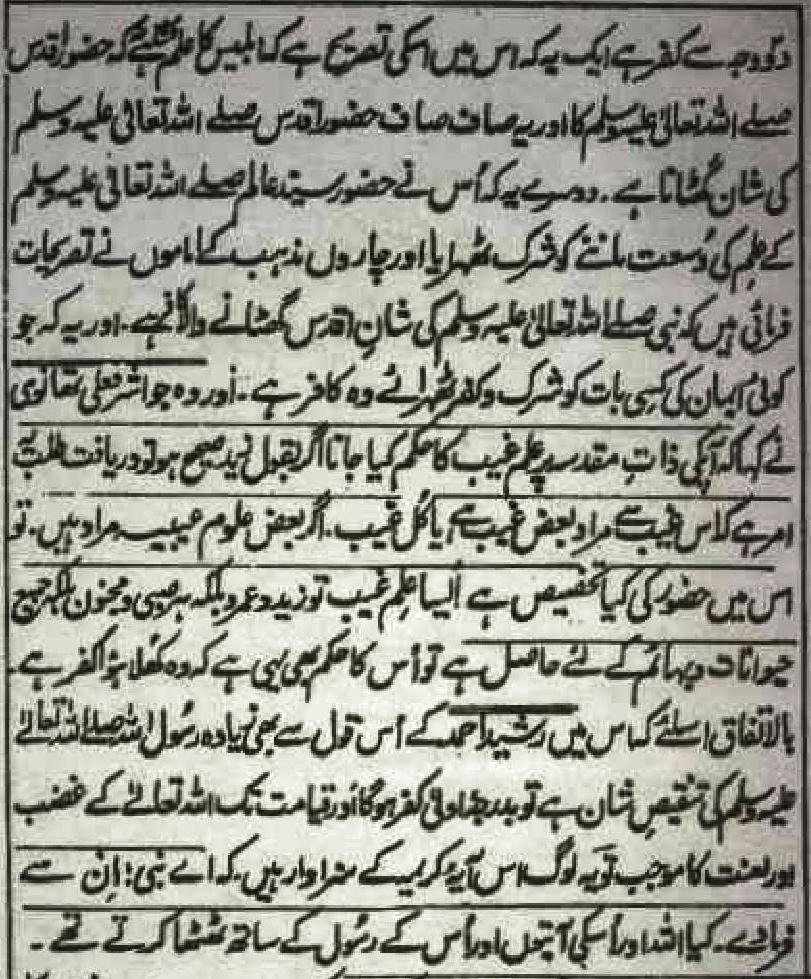 دو وجہ سے کفر ہے ایک یہ کہ اس میں اسکی تصریح ہے کہ ابلیس کا علم ہے نہ کہ حضور اقدس
صلے اللہ تعالیٰ علیہ وسلم کا اور یہ صاف صاف حضور اقدس صلے اللہ تعالیٰ علیہ وسلم
کی شان گھٹانا ہے ۔ دوسرے یہ کہ اُس نے حضور سید عالم صلے اللہ تعالیٰ علیہ وسلم
کے علم کی وُسعت ماننے کو شرک ٹھہرایا اور چاروں مذہب کے اماموں نے تصریحات
فرمائی ہیں کہ نبی صلے اللہ تعالیٰ علیہ وسلم کی شانِ اقدس گھٹانے والا کافر ہے ۔ اور یہ کہ جو
کوئی ایمان کی کسی بات کو شرک و کفر ٹھہرائے وہ کافر ہے ۔ اور وہ جو اشرفعلی تھانوی
نے کہا کہ آپکی ذاتِ مقدسہ پر علم غیب کا حکم کیا جانا اگر بقول زید صحیح ہو تو دریافت طلب یہ
امر ہے کہ اس غیب سے مراد بعض غیب ہے یا کُل غیب ۔ اگر بعض علوم غیبیہ مراد ہیں ۔ تو
اس میں حضور کی کیا تخصیص ہے ایسا علم غیب تو زید و عمرو بلکہ ہر صبی و مجنون بلکہ جمیع
حیوانات و بہائم کے لئے حاصل ہے تو اُس کا حکم بھی یہی ہے کہ وہ کھلا ہوا کفر ہے ۔
بالاتفاق اسلئے کہ اس میں رشید احمد کے اُس قول سے بھی زیادہ رسُول اللہ صلے اللہ تعالےٰ
علیہ وسلم کی تنقیصِ شان ہے تو بدرجۂ اولیٰ کفر ہو گا اور قیامت تک اللہ تعالےٰ کے غضب
اور لعنت کا موجب تو یہ لوگ اس آیۂ کریمہ کے سزاوار ہیں ۔ کہ اے نبی ! اِن سے
فرما دے ۔ کیا اللہ اور اُسکی آیتوں اور اُس کے رسُول کے ساتھ ٹھٹھا کرتے تھے ۔